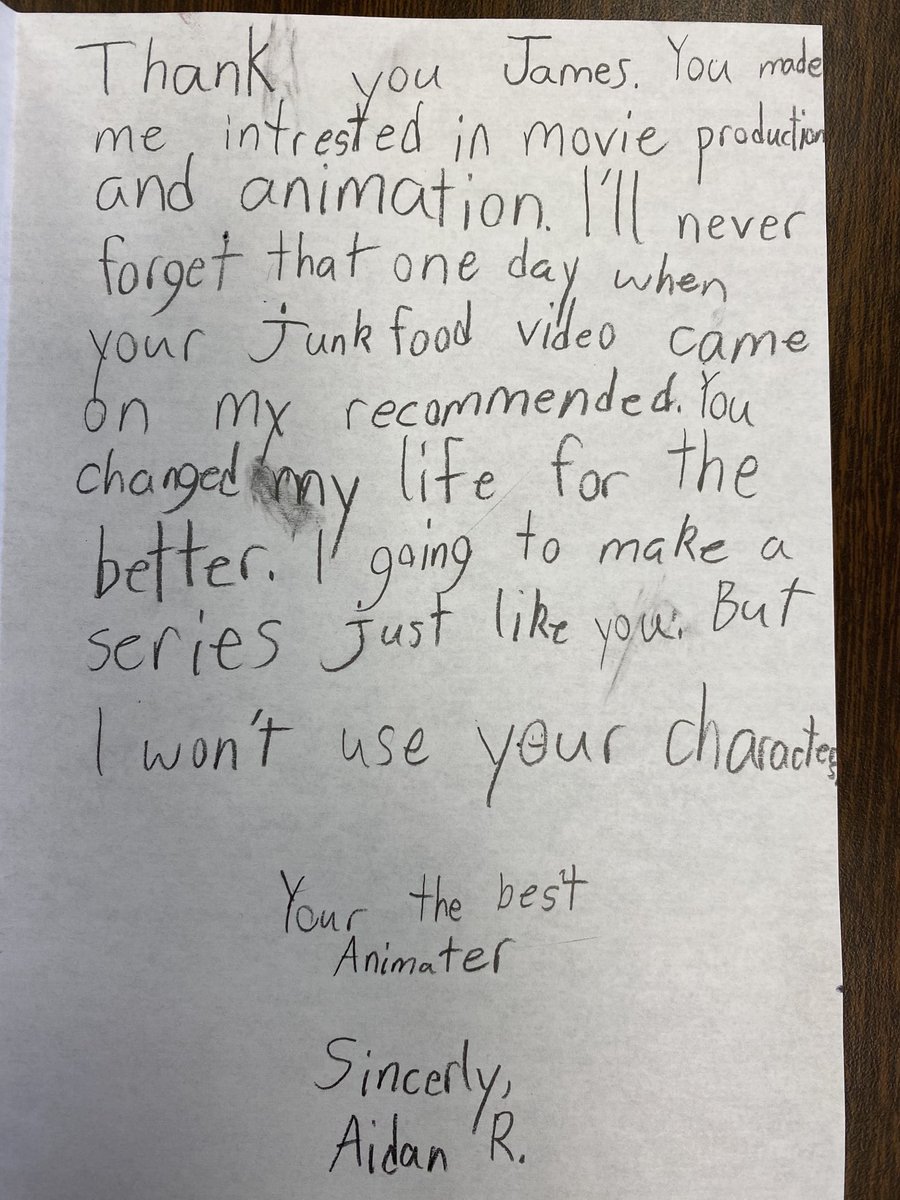 Thank you James. You made
me intrested in movie production
and animation. I'll never
forget that one day when
your junk food video came
on my recommended. You
changed my life for the
better. I going to make a
series just like you. But
I won't use your characters
Your the best
Animater
Sincerly,
Aidan R.